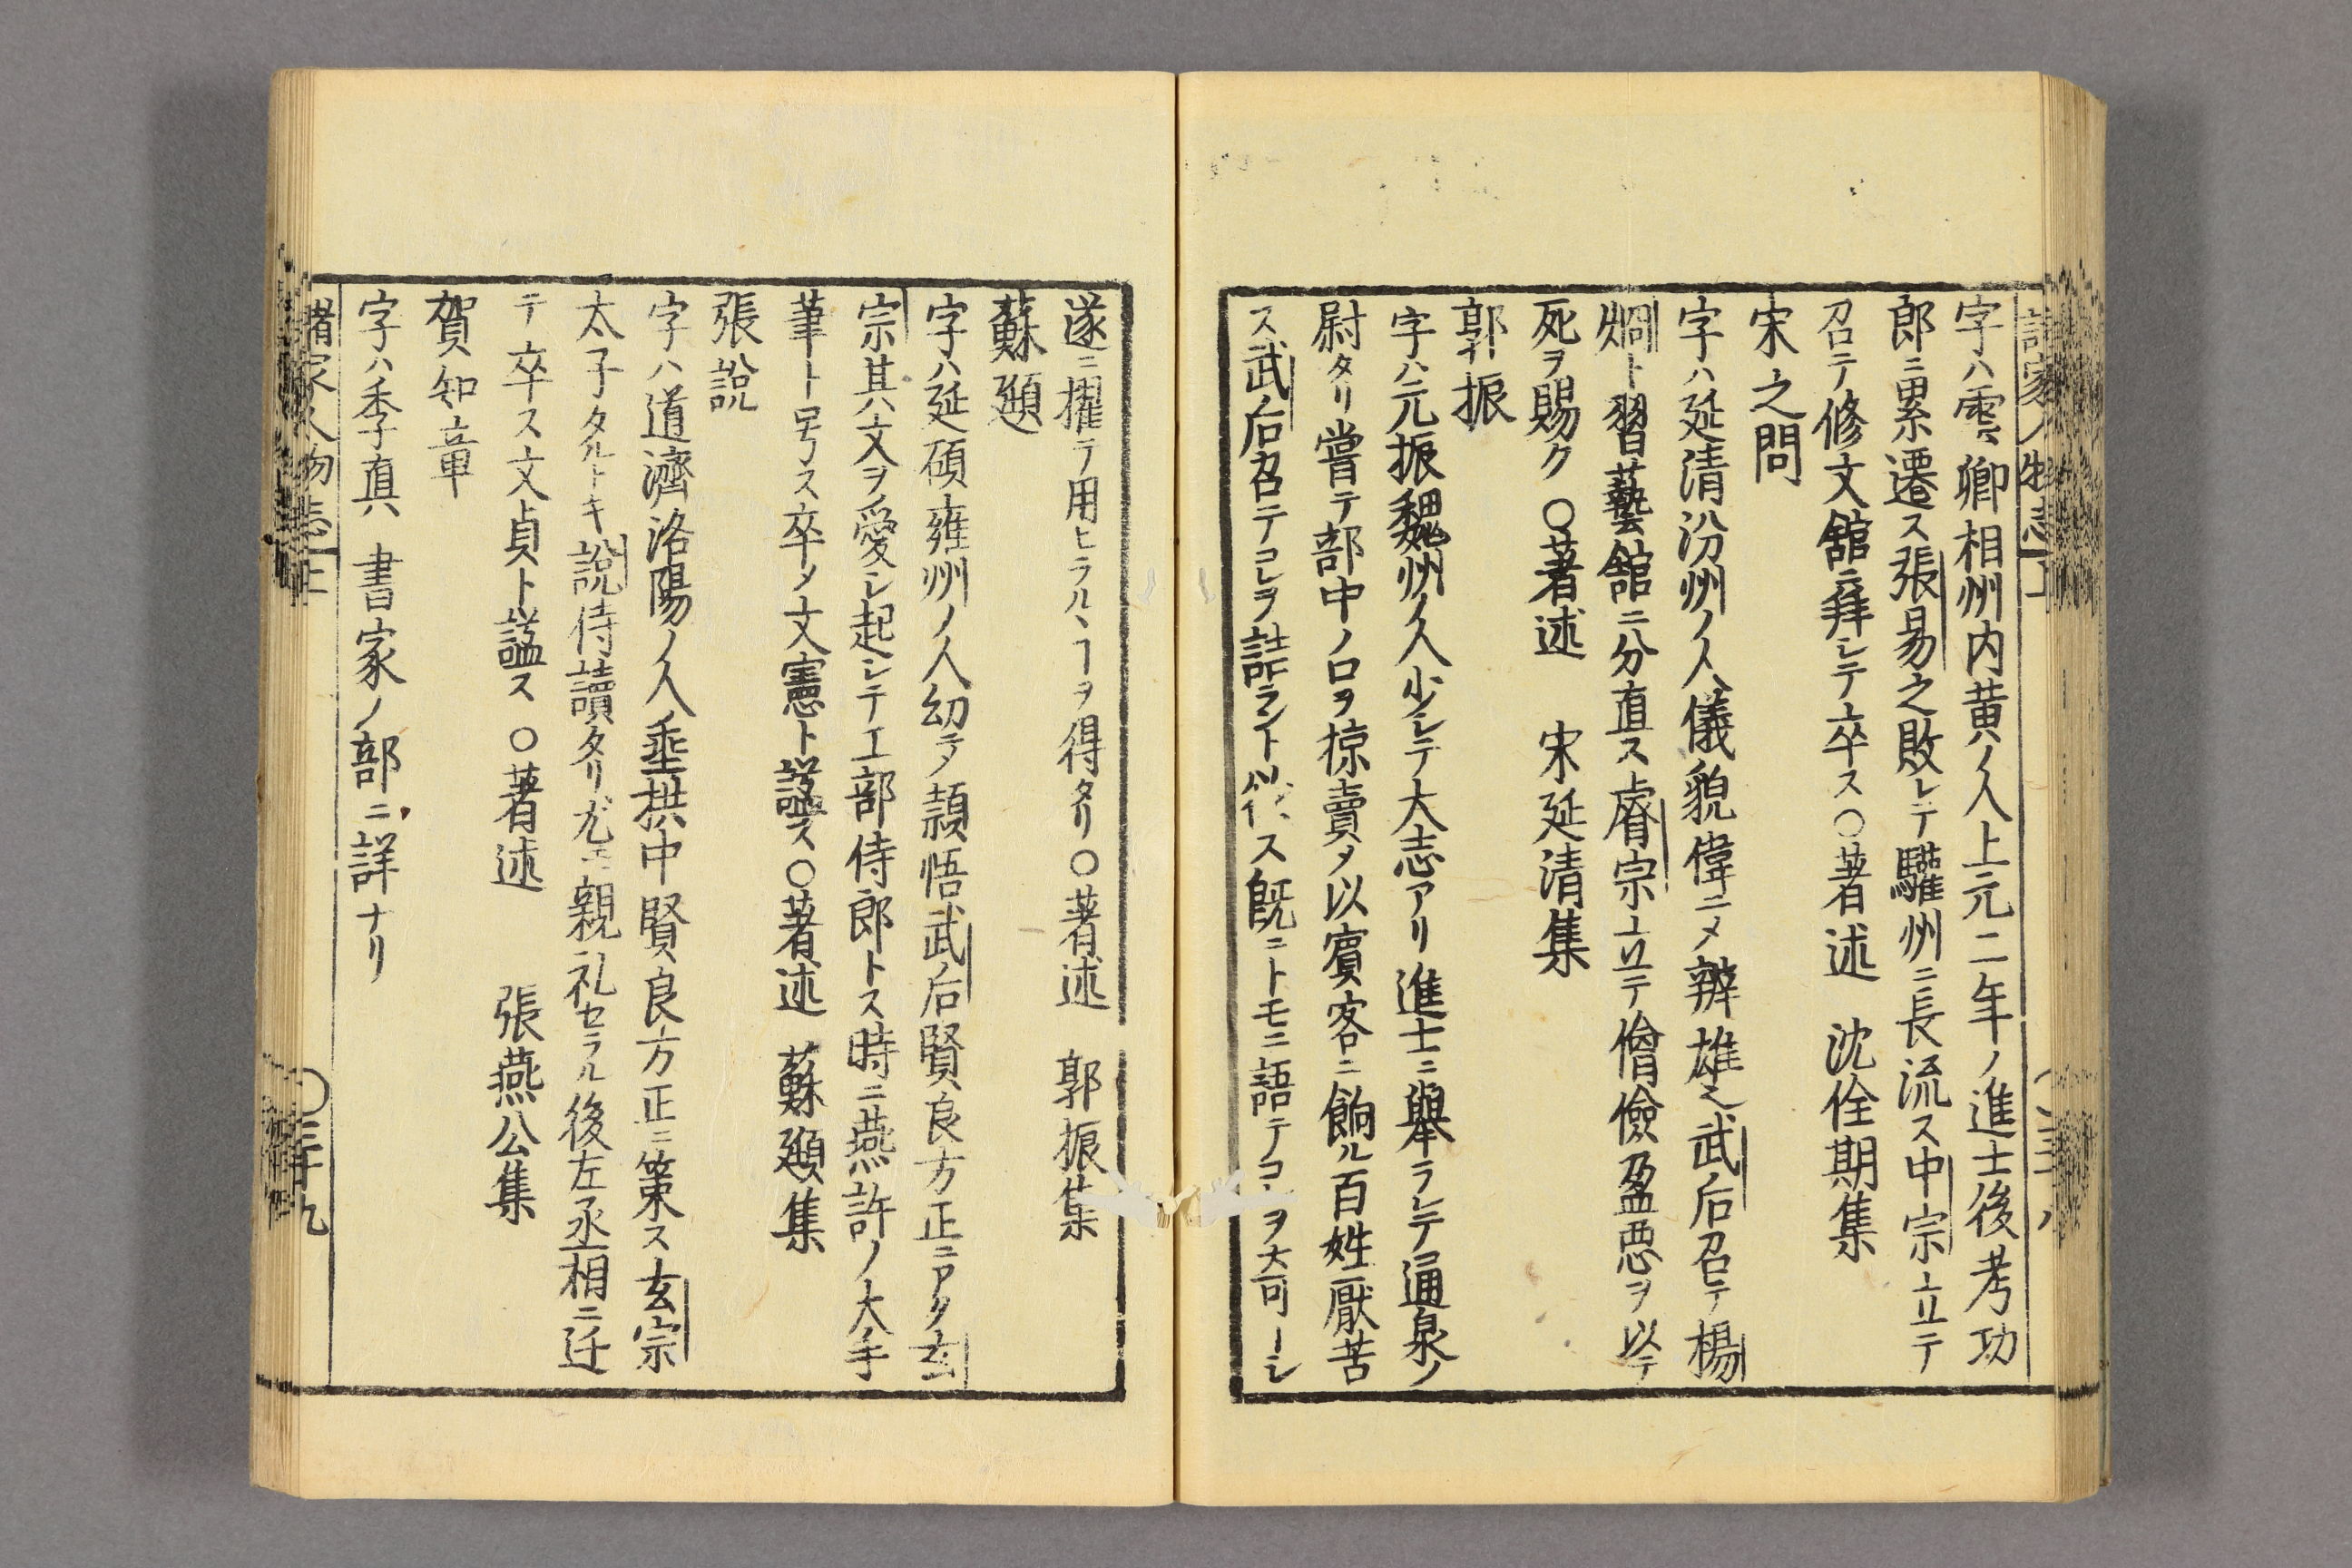 字ハ雲卿相州内黄ノ人上元二年ノ進士後考功
郎ニ累遷ス張易之敗レテ驩州ニ長流ス中宗立テ
召テ修文舘ニ拜シテ卒ス○著述　沈佺期集
宋之問
字ハ延清汾州ノ人儀貌偉ニメ辨雄之武后召テ楊
烱ト習藝舘ニ分直ス睿宗立テ僧儉盈惡ヲ以テ
死ヲ賜ク　○著述　宋延清集
郭振
字ハ元振魏州ノ人少シテ大志アリ進士ニ舉ラレテ通泉ノ
尉タリ嘗テ部中ノ口ヲ掠賣メ以賓客ニ餉ル百姓厭苦
ス武后召テコレヲ詰ラント欲ス既ニトモニ語テコヲ大可トシ
遂ニ擢テ用ヒラルヽヿヲ得タリ○著述　郭振集
蘇頲
字ハ延碩雍州ノ人幼テ頴悟武后賢良方正ニアク玄
宗其ハ文ヲ愛シ起シテ工部侍郎トス時ニ燕許ノ大手
筆ト号ス卒メ文憲ト謚ス○著述　蘇頲集
張說
字ハ道濟洛陽ノ人垂拱中賢良方正ニ策ス玄宗
太子タルトキ說侍讀タリ尤モ親礼セラル後左丞相ニ迁
テ卒ス文貞ト謚ス　○著述　張燕公集
賀知章
字ハ季真　書家ノ部ニ詳ナリ
諸家人物志上　○三十九